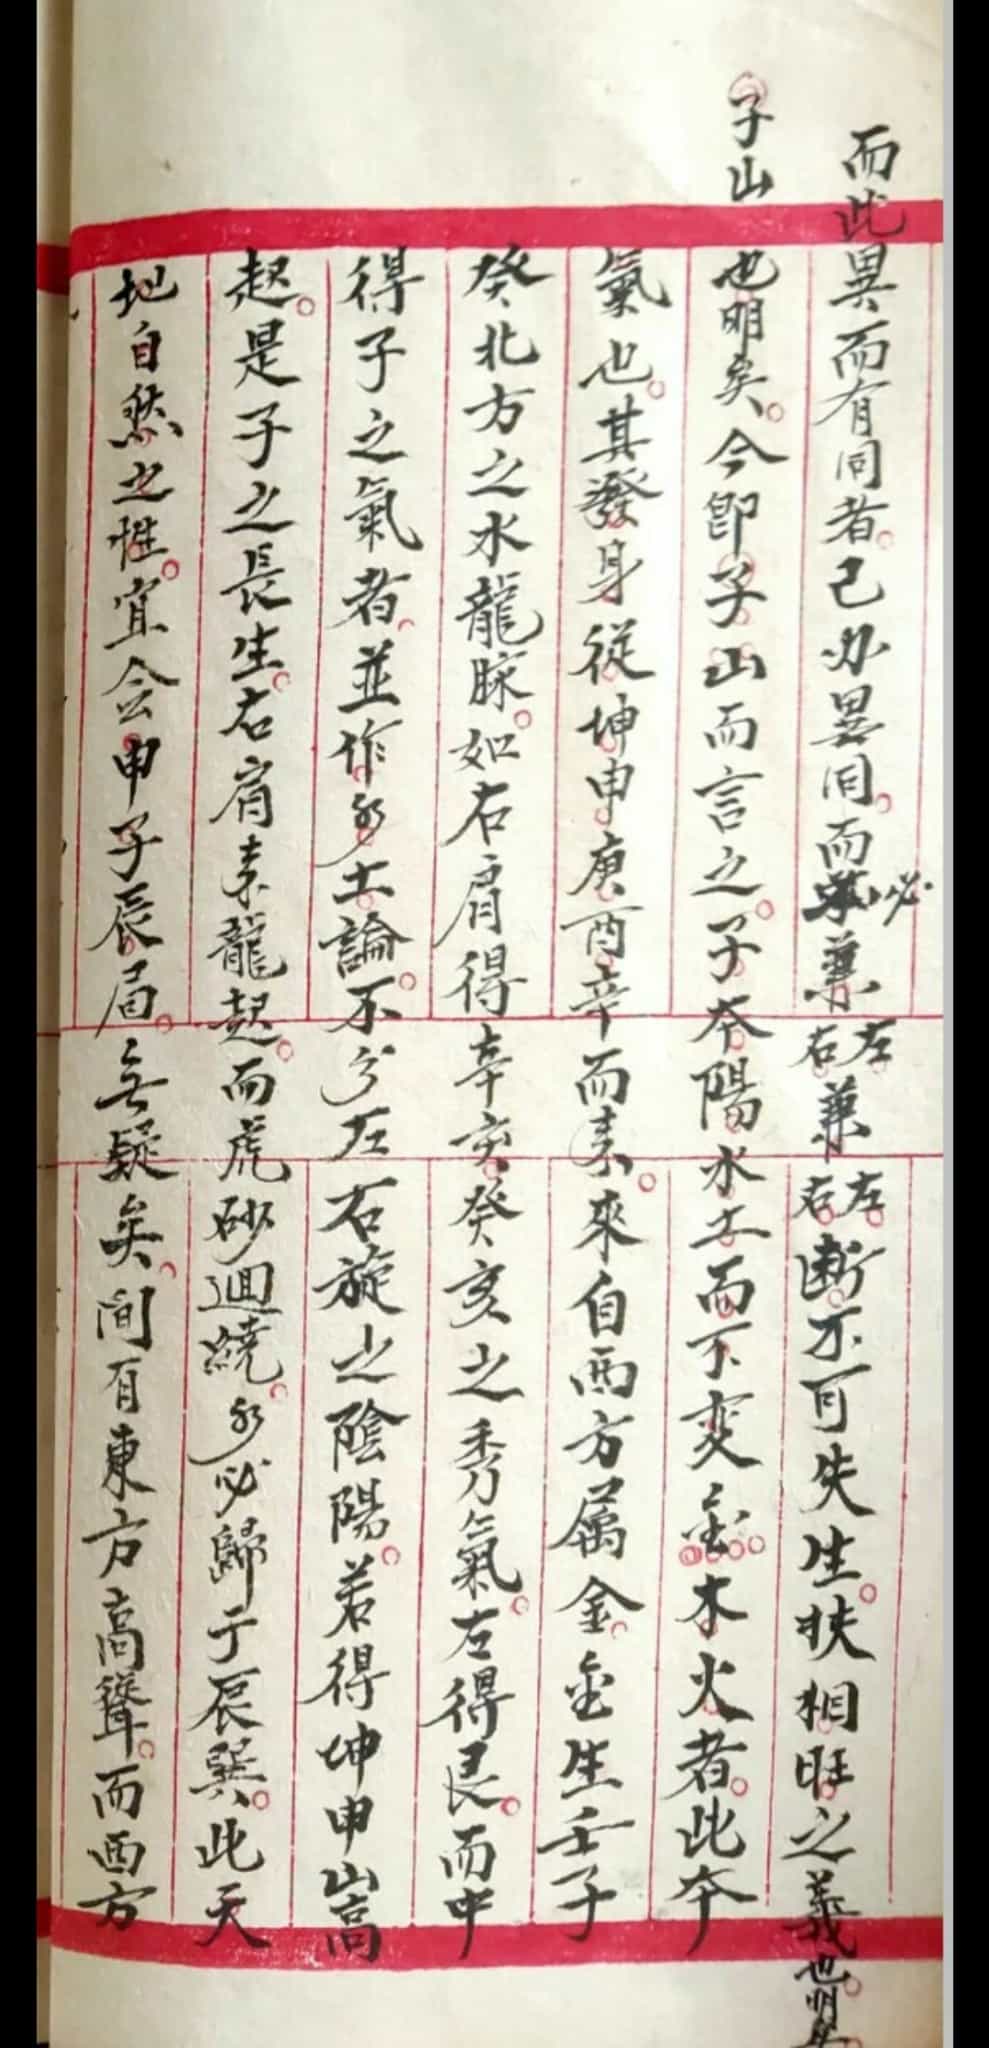 而此異而有同者己必異同而必兼左右兼左右断不可失生扶相旺之義也明矣
子山
也明矣今即子山而言之子夲陽水土而不変金木火者此夲
氣也其發身從坤申庚酉辛而来來自西方属金金生壬子
癸北方之水龍脉如右肩得辛亥癸亥之秀氣左得艮而中
得子之氣者並作水土論不分左右旋之陰陽若得坤申山高
起是子之長生右肩来龍起而虎砂迴繞水必歸于辰巽此天
地自然之性宜会申子辰局无疑矣间有東方高聳而西方